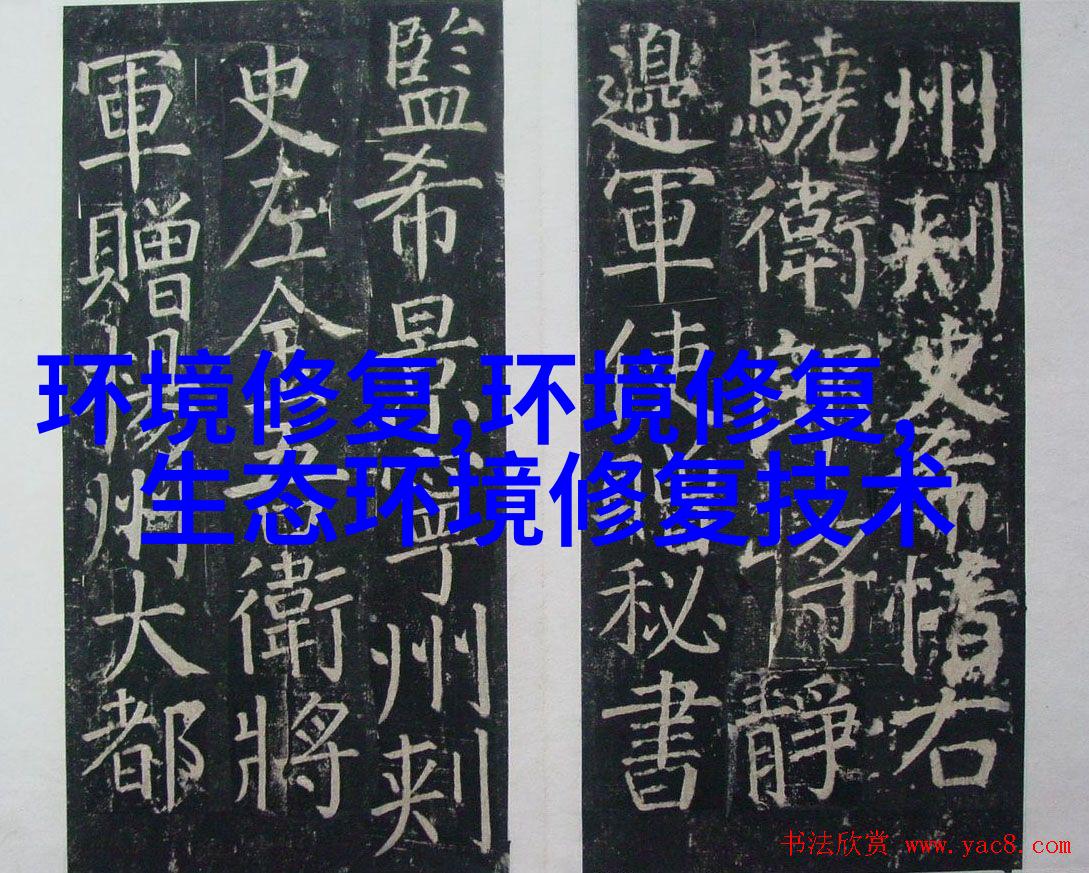 州刺史希右
驍衛郎將靜
邊軍使贈秘書
監希景寧州刺
史左金吾衛將
軍贈揚州大都
环境修复,环境修复,
生态环境修复技术
书法欣赏 www.yac8.com